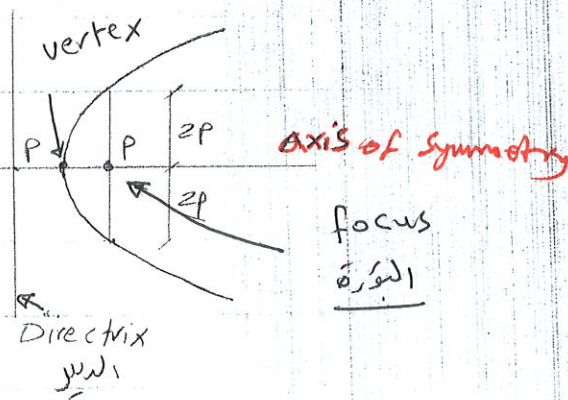 vertex
P
P
2P
2P
Axis of Symmetry
focus
البؤرة
Directrix